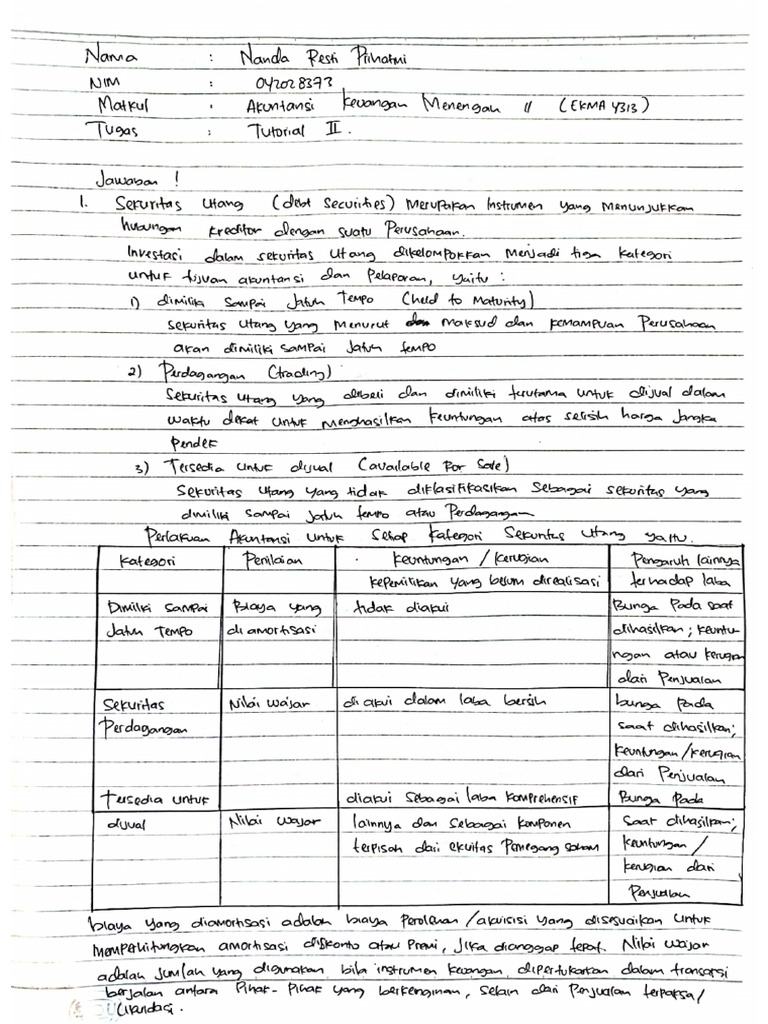 Nama : Nanda Resti Prihatmi
NIM : 042028373
Matkul : Akuntansi Keuangan Menengah II (EKMA 4313)
Tugas : Tutorial II.
Jawaban !
1. Sekuritas Utang (debt Securities) Merupakan Instrumen yang menunjukkan
hubungan kreditor dengan suatu Perusahaan.
Investasi dalam sekuritas utang dikelompokkan menjadi tiga kategori
untuk tujuan akuntansi dan Pelaporan, yaitu :
1) dimiliki sampai Jatuh Tempo (held to Maturity)
sekuritas utang yang menurut maksud dan kemampuan Perusahaan
akan dimiliki sampai jatuh tempo
2) Perdagangan (trading)
Sekuritas utang yang dibeli dan dimiliki terutama untuk dijual dalam
waktu dekat untuk menghasilkan keuntungan atas selisih harga jangka
pendek
3) Tersedia untuk dijual (available for Sale)
Sekuritas utang yang tidak diklasifikasikan sebagai sekuritas yang
dimiliki sampai jatuh tempo atau Perdagangan
Perlakuan Akuntansi untuk Setiap Kategori Sekuritas Utang yaitu.
Kategori Penilaian Keuntungan / Kerugian Pengaruh lainnya
kepemilikan yang belum direalisasi terhadap laba
Dimiliki sampai Biaya yang tidak diakui Bunga Pada saat
Jatuh Tempo diamortisasi dihasilkan; keuntu-
ngan atau kerugian
dari Penjualan
Sekuritas Nilai wajar diakui dalam laba bersih bunga pada
Perdagangan saat dihasilkan;
keuntungan/kerugian
dari Penjualan
Tersedia untuk diakui sebagai laba komprehensif Bunga Pada
dijual Nilai wajar lainnya dan sebagai komponen saat dihasilkan;
terpisah dari ekuitas Pemegang saham keuntungan /
kerugian dari
Penjualan
biaya yang diamortisasi adalah biaya Perolehan /akuisisi yang disesuaikan untuk
memperhitungkan amortisasi diskonto atau Premi, Jika dianggap tepat. Nilai wajar
adalah jumlah yang digunakan bila instrumen keuangan dipertukarkan dalam transaksi
berjalan antara Pihak-Pihak yang berkeinginan, selain dari Penjualan terpaksa/
likuidasi.